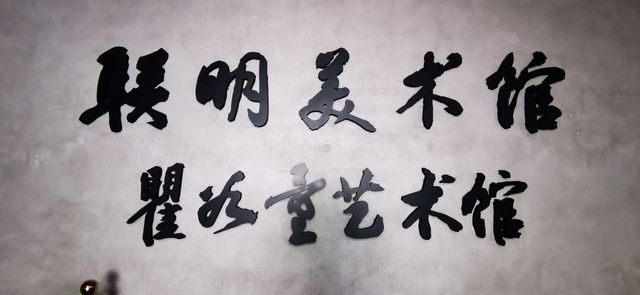 联明美术馆
瞿谷童艺术馆